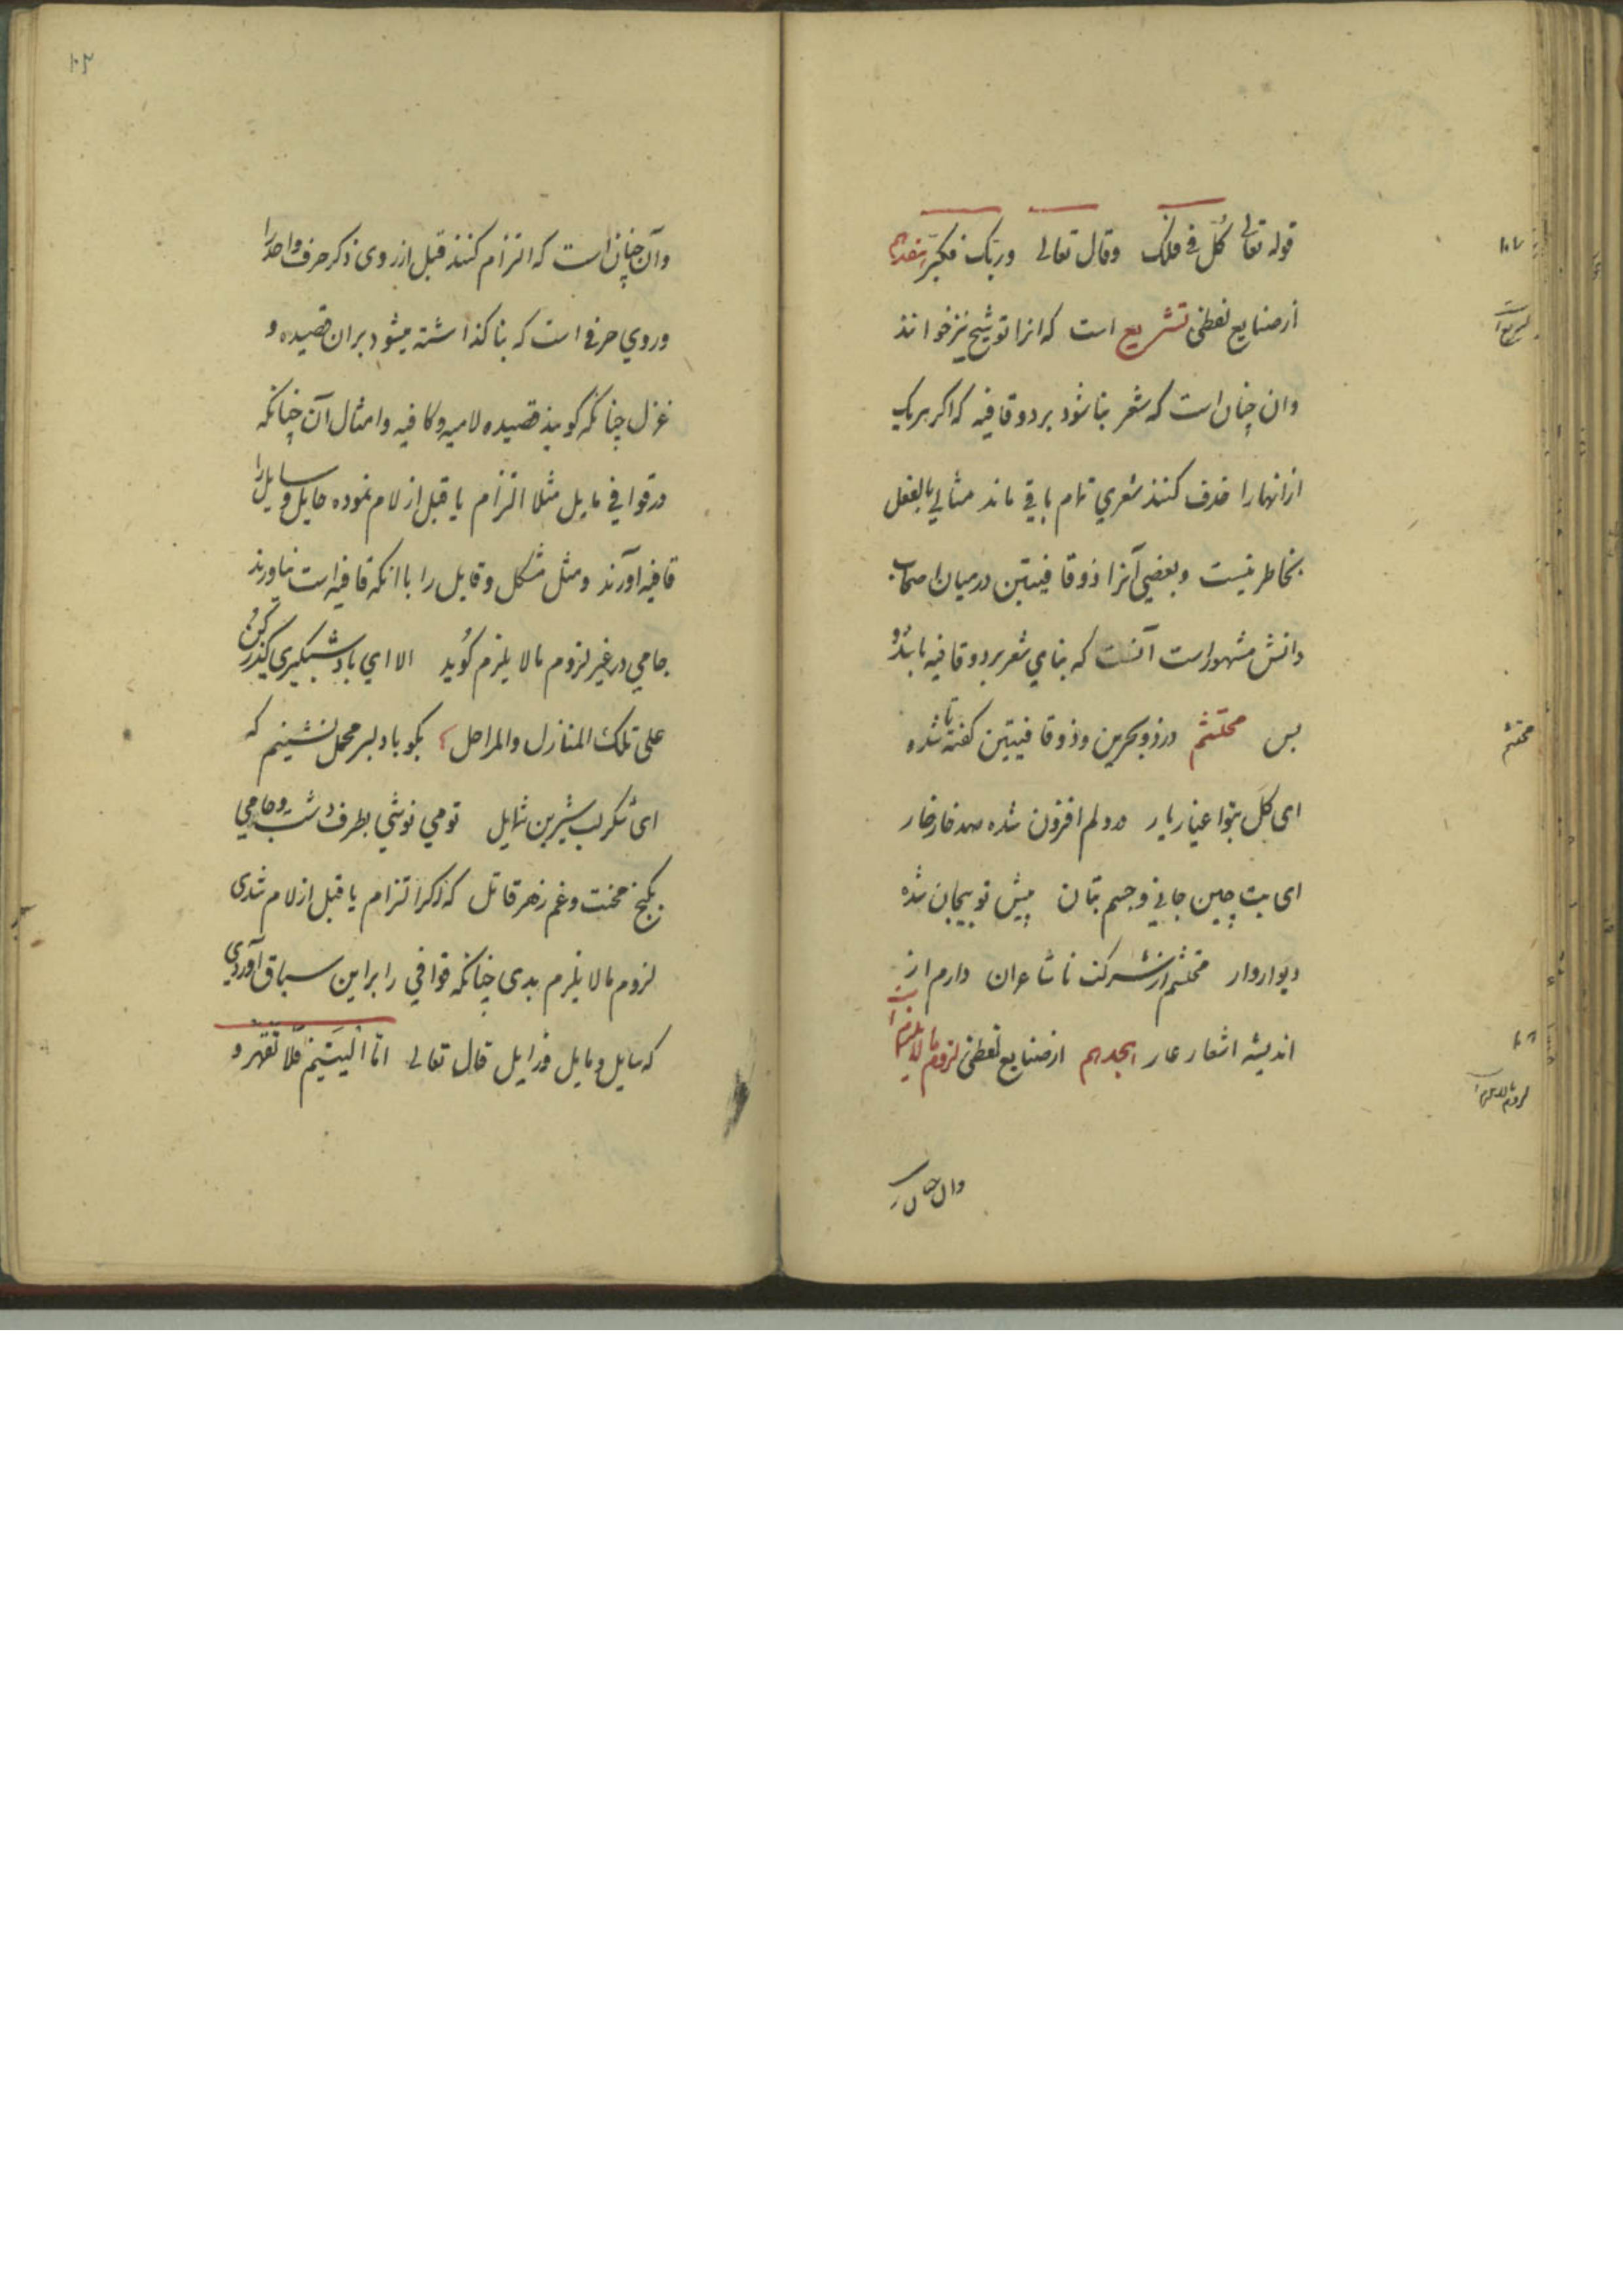 قوله تعالی کُلّ فی فلک وقال تعالی وربّک فکبّر هفدهم
ازصنایع لفظی تشریع است که انرا توشیح نیزخوانند
وان چنان است که شعر بنا شود بر دو قافیه که اکر هر یک
ازانهارا حذف کنند شعری تمام باقی ماند مثالی بالفعل
بخاطر نیست و بعضی آنرا ذوقافیتین درمیان اصحاب
دانش مشهوراست آنست که بنای شعر بر دو قافیه باشد و
بس محتشم در ذوبحرین و ذوقافیتین کفته تا شده
ای کل بتو اغیار یار در دلم افزون شده صد خار خار
ای بت چین جانی و جسم بتان پیش تو بیجان شده
دیواروار محتشم از شرکت ناشاعران دارم از
اندیشه اشعار عار هجدهم ازصنایع لفظی لزوم مالایلزم است
وان چنان است
۱۰۷
تشریع است
محتشم
۱۰۸
لزوم مالایلزم است
۱۰۲
وآن چنان است که التزام کنند قبل از روی ذکر حرف واحد را
و روی حرفی است که بنا کذاشته میشود بران قصیده و
غزل چنانکه کویند قصیده لامیه و کافیه و امثال آن چنانکه
درقوافی مایل مثلا التزام یا قبل از لام نموده حایل و سایل را
قافیه آورند و مثل مشکل و قایل را با انکه قافیه است نیاورند
جامی در غیر لزوم مالایلزم کُوید الا ای باد شبکیری کذر کن
علی تلک المنازل والمراحل بکو با دلبر محمل نشینم که
ای شکر لب شیرین شمایل تو می نوشی بطرف دشت و جامی
بکنج محنت و غم زهر قاتل که اکر التزام یا قبل از لام شدی
لزوم مالایلزم بدی چنانکه قوافی را براین سیاق آوردی
که سایل و مایل و زایل قال تعالی امّا الیَتیمَ فَلا تَقهَر و